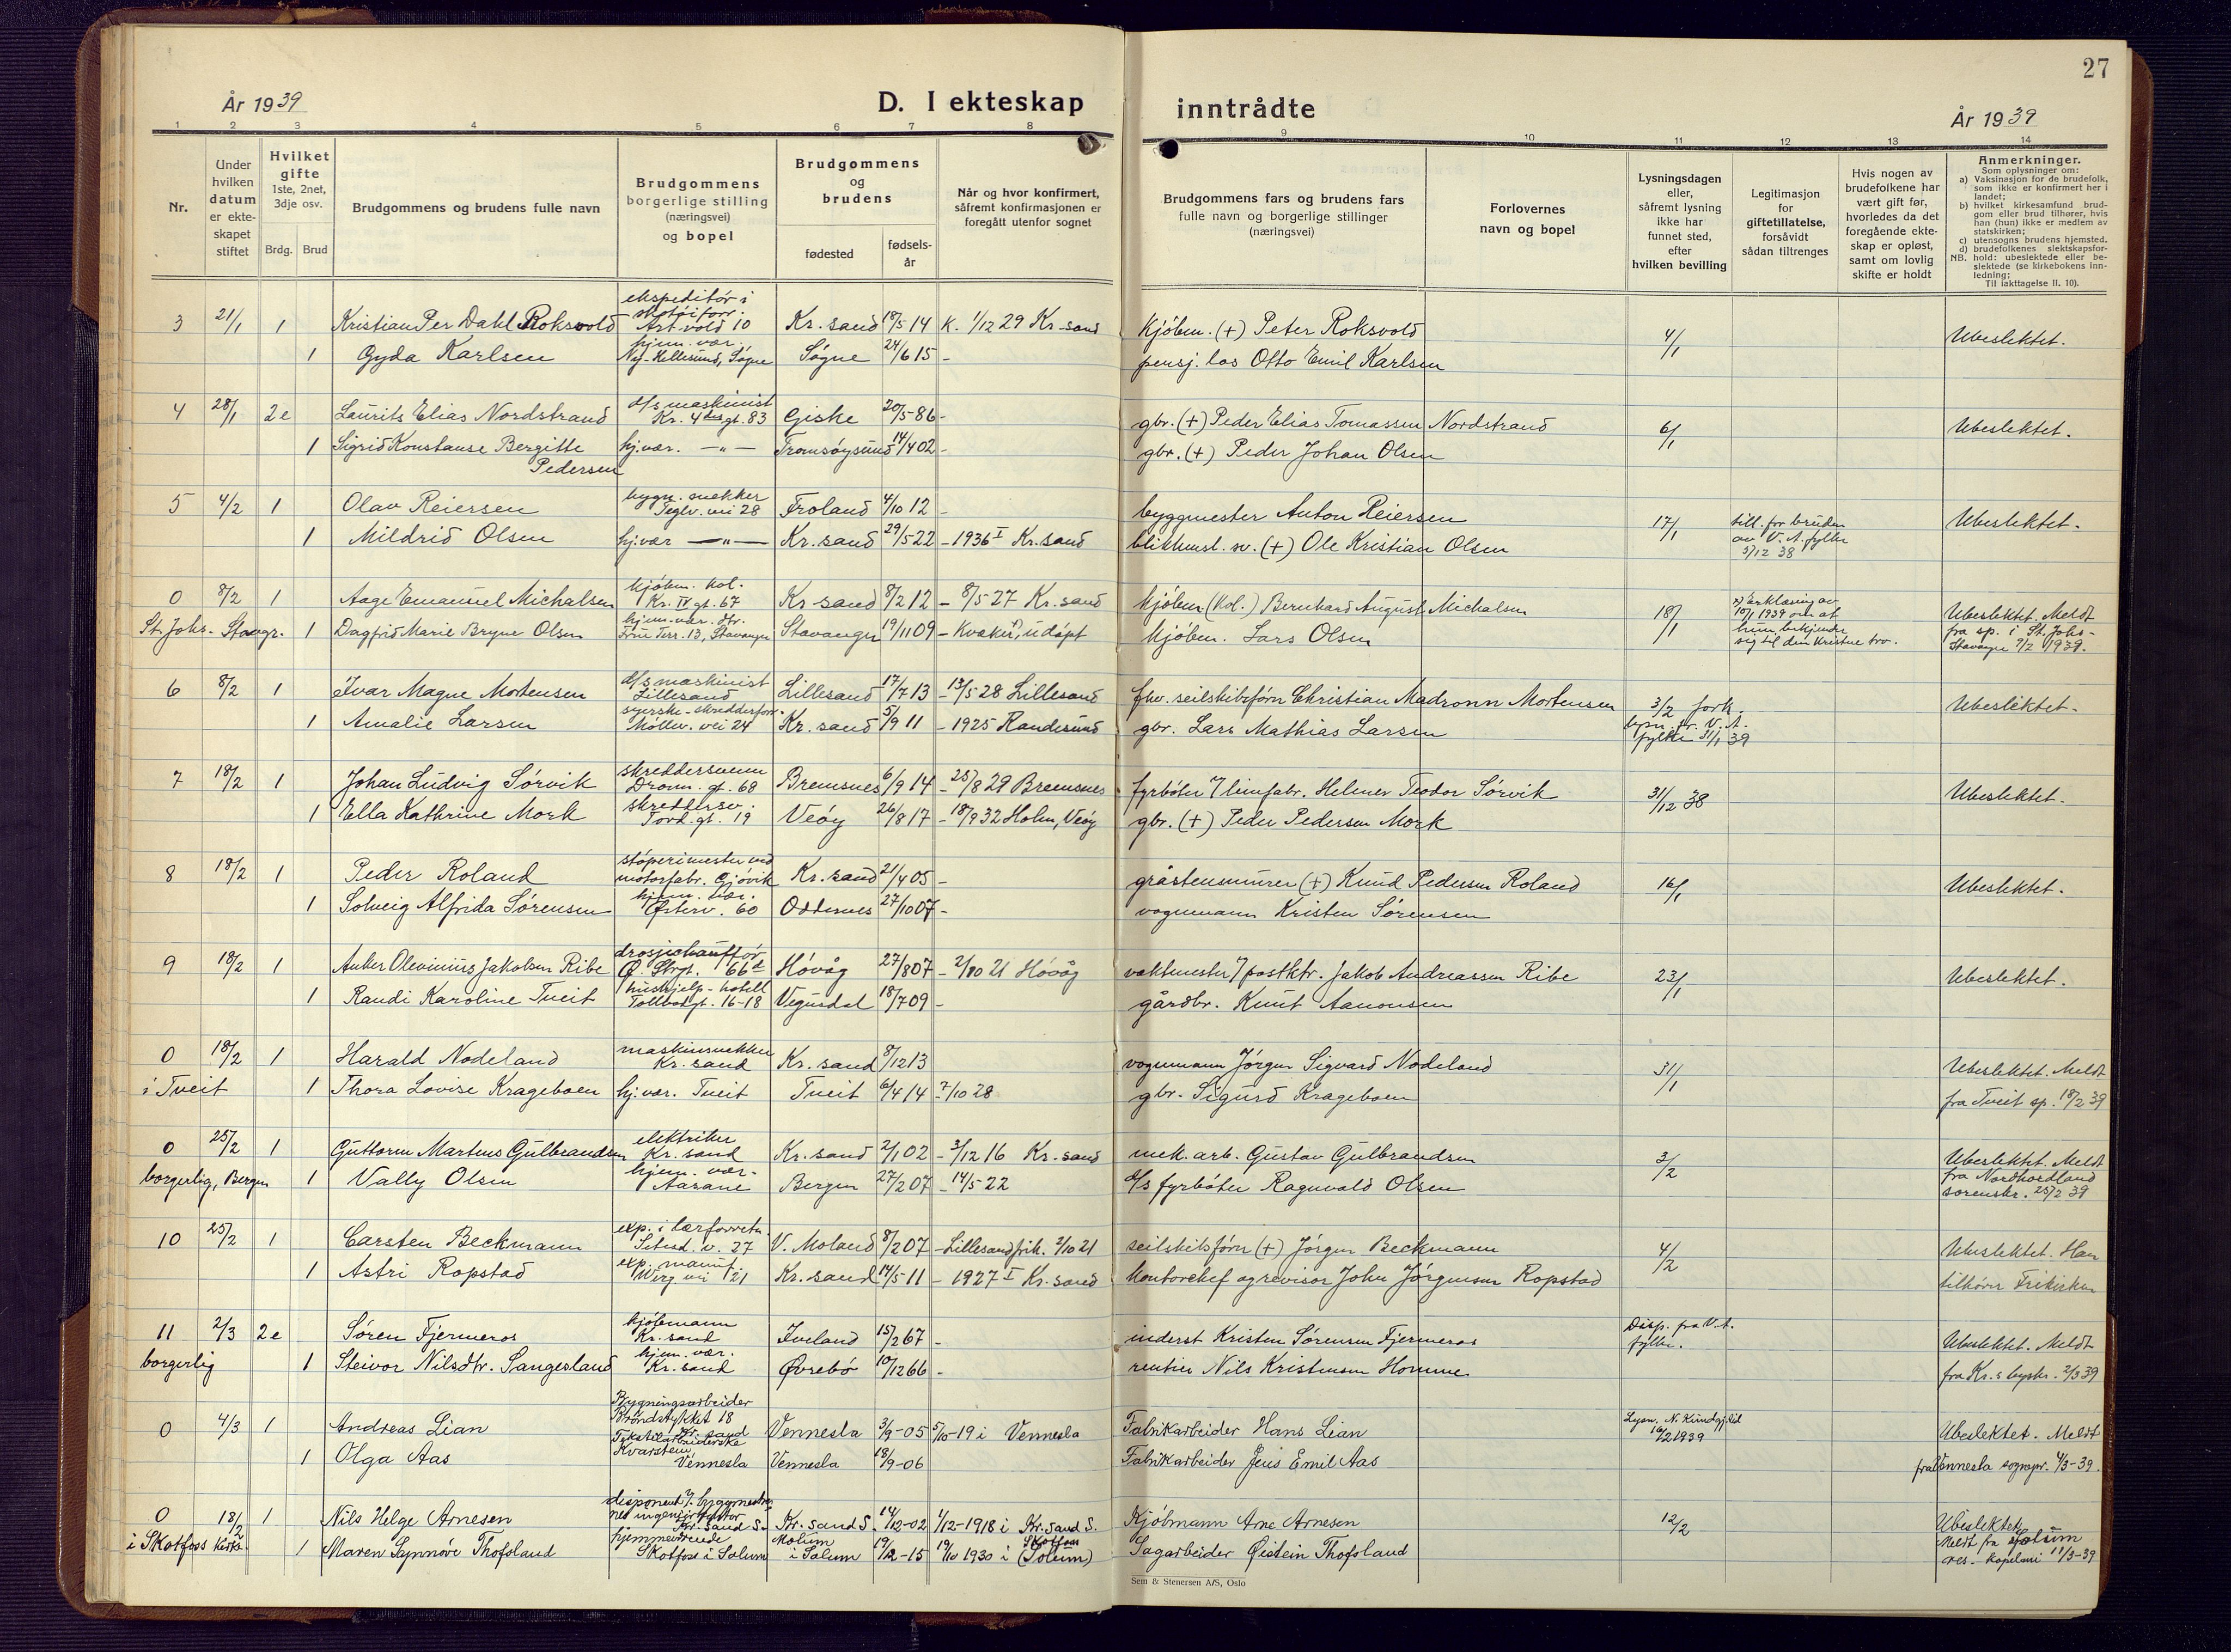 27
År 1939
D. I ekteskap
inntrådte
År 1939
1 2 3 4 5 6 7 8 9 10 11 12 13 14
Nr.
Under
hvilken
datum
er ekte-
skapet
stiftet
Hvilket
gifte
1ste, 2net,
3dje osv.
Brdg. Brud
Brudgommens og brudens fulle navn
Brudgommens
borgerlige stilling
(næringsvei)
og bopel
Brudgommens
og
brudens
fødested
fødsels-
år
Når og hvor konfirmert,
såfremt konfirmasjonen er
foregått utenfor sognet
Brudgommens fars og brudens fars
fulle navn og borgerlige stillinger
(næringsvei)
Forlovernes
navn og bopel
Lysningsdagen
eller,
såfremt lysning
ikke har
funnet sted,
efter
hvilken bevilling
Legitimasjon
for
giftetillatelse,
forsåvidt
sådan tiltrenges
Hvis nogen av
brudefolkene har
vært gift før,
hvorledes da det
foregående ekte-
skap er opløst,
samt om lovlig
skifte er holdt
Anmerkninger.
Som oplysninger om:
a) Vaksinasjon for de brudefolk,
som ikke er konfirmert her i
landet;
b) hvilket kirkesamfund brud-
gom eller brud tilhører, hvis
han (hun) ikke er medlem av
statskirken;
c) utensogns brudens hjemsted.
d) brudefolkenes slektskapsfor-
NB. hold: ubeslektede eller be-
slektede (se kirkebokens inn-
ledning;
Til iakttagelse II. 10).
3 21/1 1 Kristian Per Dahl Roksvold ekspeditör i skotöiforr. Art. vold 10 Kr. sand 18/5 14 K. 1/12 29 Kr. sand Kjöbm. (+) Peter Roksvold 4/1 Ubeslektet.
1 Gyda Karlsen hjem. vær. Ny-Hellesund, Søgne Søgne 24/6 15 - pensj. los Otto Emil Karlsen
4 28/1 2e Laurits Elias Nordstrand d/s maskinist Kr. 4des gt. 83 Giske 20/5 86 - gbr. (+) Peder Elias Tomassen Nordstrand 6/1 Ubeslektet.
1 Sigrid Konstanse Bergitte Pedersen hj. vær. -„- Tromsöysund 14/4 02 - gbr. (+) Peder Johan Olsen
5 4/2 1 Olav Reiersen bygn. snekker Teglv. vei 28 Froland 4/10 12 - byggmester Anton Reiersen 17/1 till. for bruden av V. A. fylke 3/12 38 Ubeslektet.
1 Mildrid Olsen hj. vær -„- Kr. sand 29/5 22 - 1936 I Kr. sand blikkensl. sv. (+) Ole Kristian Olsen
0 8/2 1 Aage Emanuel Michalsen kjöbm. kol. Kr. IV gt. 67 Kr. sand 8/2 12 - 8/5 27 Kr. sand kjöbm (kol.) Bernhard August Michalsen 18/1 x) erklæring av 10/1 1939 om at hun bekjender sig til den kristne tro. Ubeslektet. Meldt
St. Johs. Stavgr. 1 Dagfrid Marie Bryne Olsen hjem. vær. Terr. 13, Stavanger Stavanger 19/11 09 - Kvæker x), udöpt kjöbm. Lars Olsen fra sp. i St. Johs - Stavanger 9/2 1939.
6 8/2 1 Ivar Magne Mortensen d/s maskinist Lillesand Lillesand 17/7 13 - 13/5 28 Lillesand fhv. seilskibsförer Christian Madronn Mortensen 3/2 fork. lysn. fr. V. A. fylke 31/1 39 Ubeslektet.
1 Amalie Larsen syerske - skredderforr. Möllev. vei 24 Kr. sand 5/9 11 - 1925 Randesund gbr. Lars Mathias Larsen
7 18/2 1 Johan Ludvig Sörvik skreddersvenn Dronn. gt. 68 Bremsnes 6/9 14 - 25/8 29 Bremsnes fyrböter v/ limfabr. Helmer Teodor Sörvik 31/12 38 Ubeslektet.
1 Ella Kathrine Mork skreddersv. Tord. gt. 19 Veöy 26/8 17 - 18/9 32 Holm, Veöy gbr. (+) Peder Pedersen Mork
8 18/2 1 Peder Roland stöperimester ved motorfabr. Gjövik Kr. sand 21/4 05 - gråstensmurer (+) Knud Pedersen Roland 16/1 Ubeslektet.
1 Solveig Alfrida Sörensen hjem. vær. Østerv. 60 Oddernes 27/10 07 - vognmann Kristen Sörensen
9 18/2 1 Anker Olevinius Jakobsen Ribe drosjechauffför Ø. Strgt. 66d Hövåg 27/8 07 - 2/10 21 Hövåg vaktmester v/ postktr. Jakob Andreassen Ribe 23/1 Ubeslektet.
1 Randi Karoline Tveit hushjelp - hotell Tollbodgt. 16-18 Vegusdal 18/7 09 - gårdbr. Knut Aanonsen
0 18/2 1 Harald Nodeland maskinsnekker Kr. sand Kr. sand 8/12 13 vognmann Jörgen Sigvard Nodeland 31/1 Ubeslektet. Meldt
i Tveit 1 Thora Lovise Krageboen hj. vær. Tveit Tveit 6/4 14 7/10 28 gbr. Sigurd Krageboen fra Tveit sp. 18/2 39
0 25/2 1 Guttorm Martens Gulbrandsen elektriker Kr. sand Kr. sand 2/1 02 - 3/12 16 Kr. sand mek. arb. Gustav Gulbrandsen 3/2 Ubeslektet. Meldt
borgerlig, Bergen 1 Vally Olsen hjem. vær. Aasane Bergen 27/2 07 - 14/5 22 d/s fyrböter Ragnvald Olsen fra Nordhordland sorenskr. 25/2 39
10 25/2 1 Carsten Beckmann exp. i lærforretn. Setesd. v. 27 V. Moland 8/2 07 - Lillesand frik. 2/10 21 seilskibsförer (+) Jörgen Beckmann 4/2 Ubeslektet. Han
1 Astri Ropstad exp. manuf. Werg. vei 21 Kr. sand 14/5 11 - 1927 I Kr. sand kontorchef og revisor John Jörgensen Ropstad tilhörer Frikirken
11 2/3 2e Sören Fjermeros kjöbmann Kr. sand Iveland 15/2 67 - inderst Kristen Sörensen Fjermeros Disp. fra V. A. fylke. Ubeslektet. Meldt
borgerlig 1 Steivor Nilsdtr. Sangesland hjem. vær. Kr. sand Øvrebö 10/12 66 - rentier Nils Kristensen Homme fra Kr. s byskr. 2/3 39
0 4/3 1 Andreas Lian Bygningsarbeider Bröndstykket 18 Kr. sand Vennesla 3/9-05 5/10-19 i Vennesla Fabrikarbeider Hans Lian Lysn. 16/2 1939 Ubeslektet. Meldt
1 Olga Aas Tekstilarbeiderske Kvarstein Vennesla Vennesla 18/9-06 Fabrikarbeider Jens Emil Aas fra Vennesla sognepr. 4/3-39.
0 18/2 1 Nils Helge Arnesen disponent v. byggmester og ingeniör Kr. sand S. Kr. sand S. 14/12-02 1/12-1918 i Kr. sand S. Kjöbmann Arne Arnesen 12/2 Ubeslektet.
i Skotfoss kirke. 1 Maren Synnöve Thofsland hjemmeværende Skotfoss i Solum Motum i Solum 19/12-15 19/10 1930 i Skotfoss (Solum) Sagarbeider Øistein Thofsland Meldt fra Solum res. kapelani 11/3-39
Sem & Stenersen A/S, Oslo